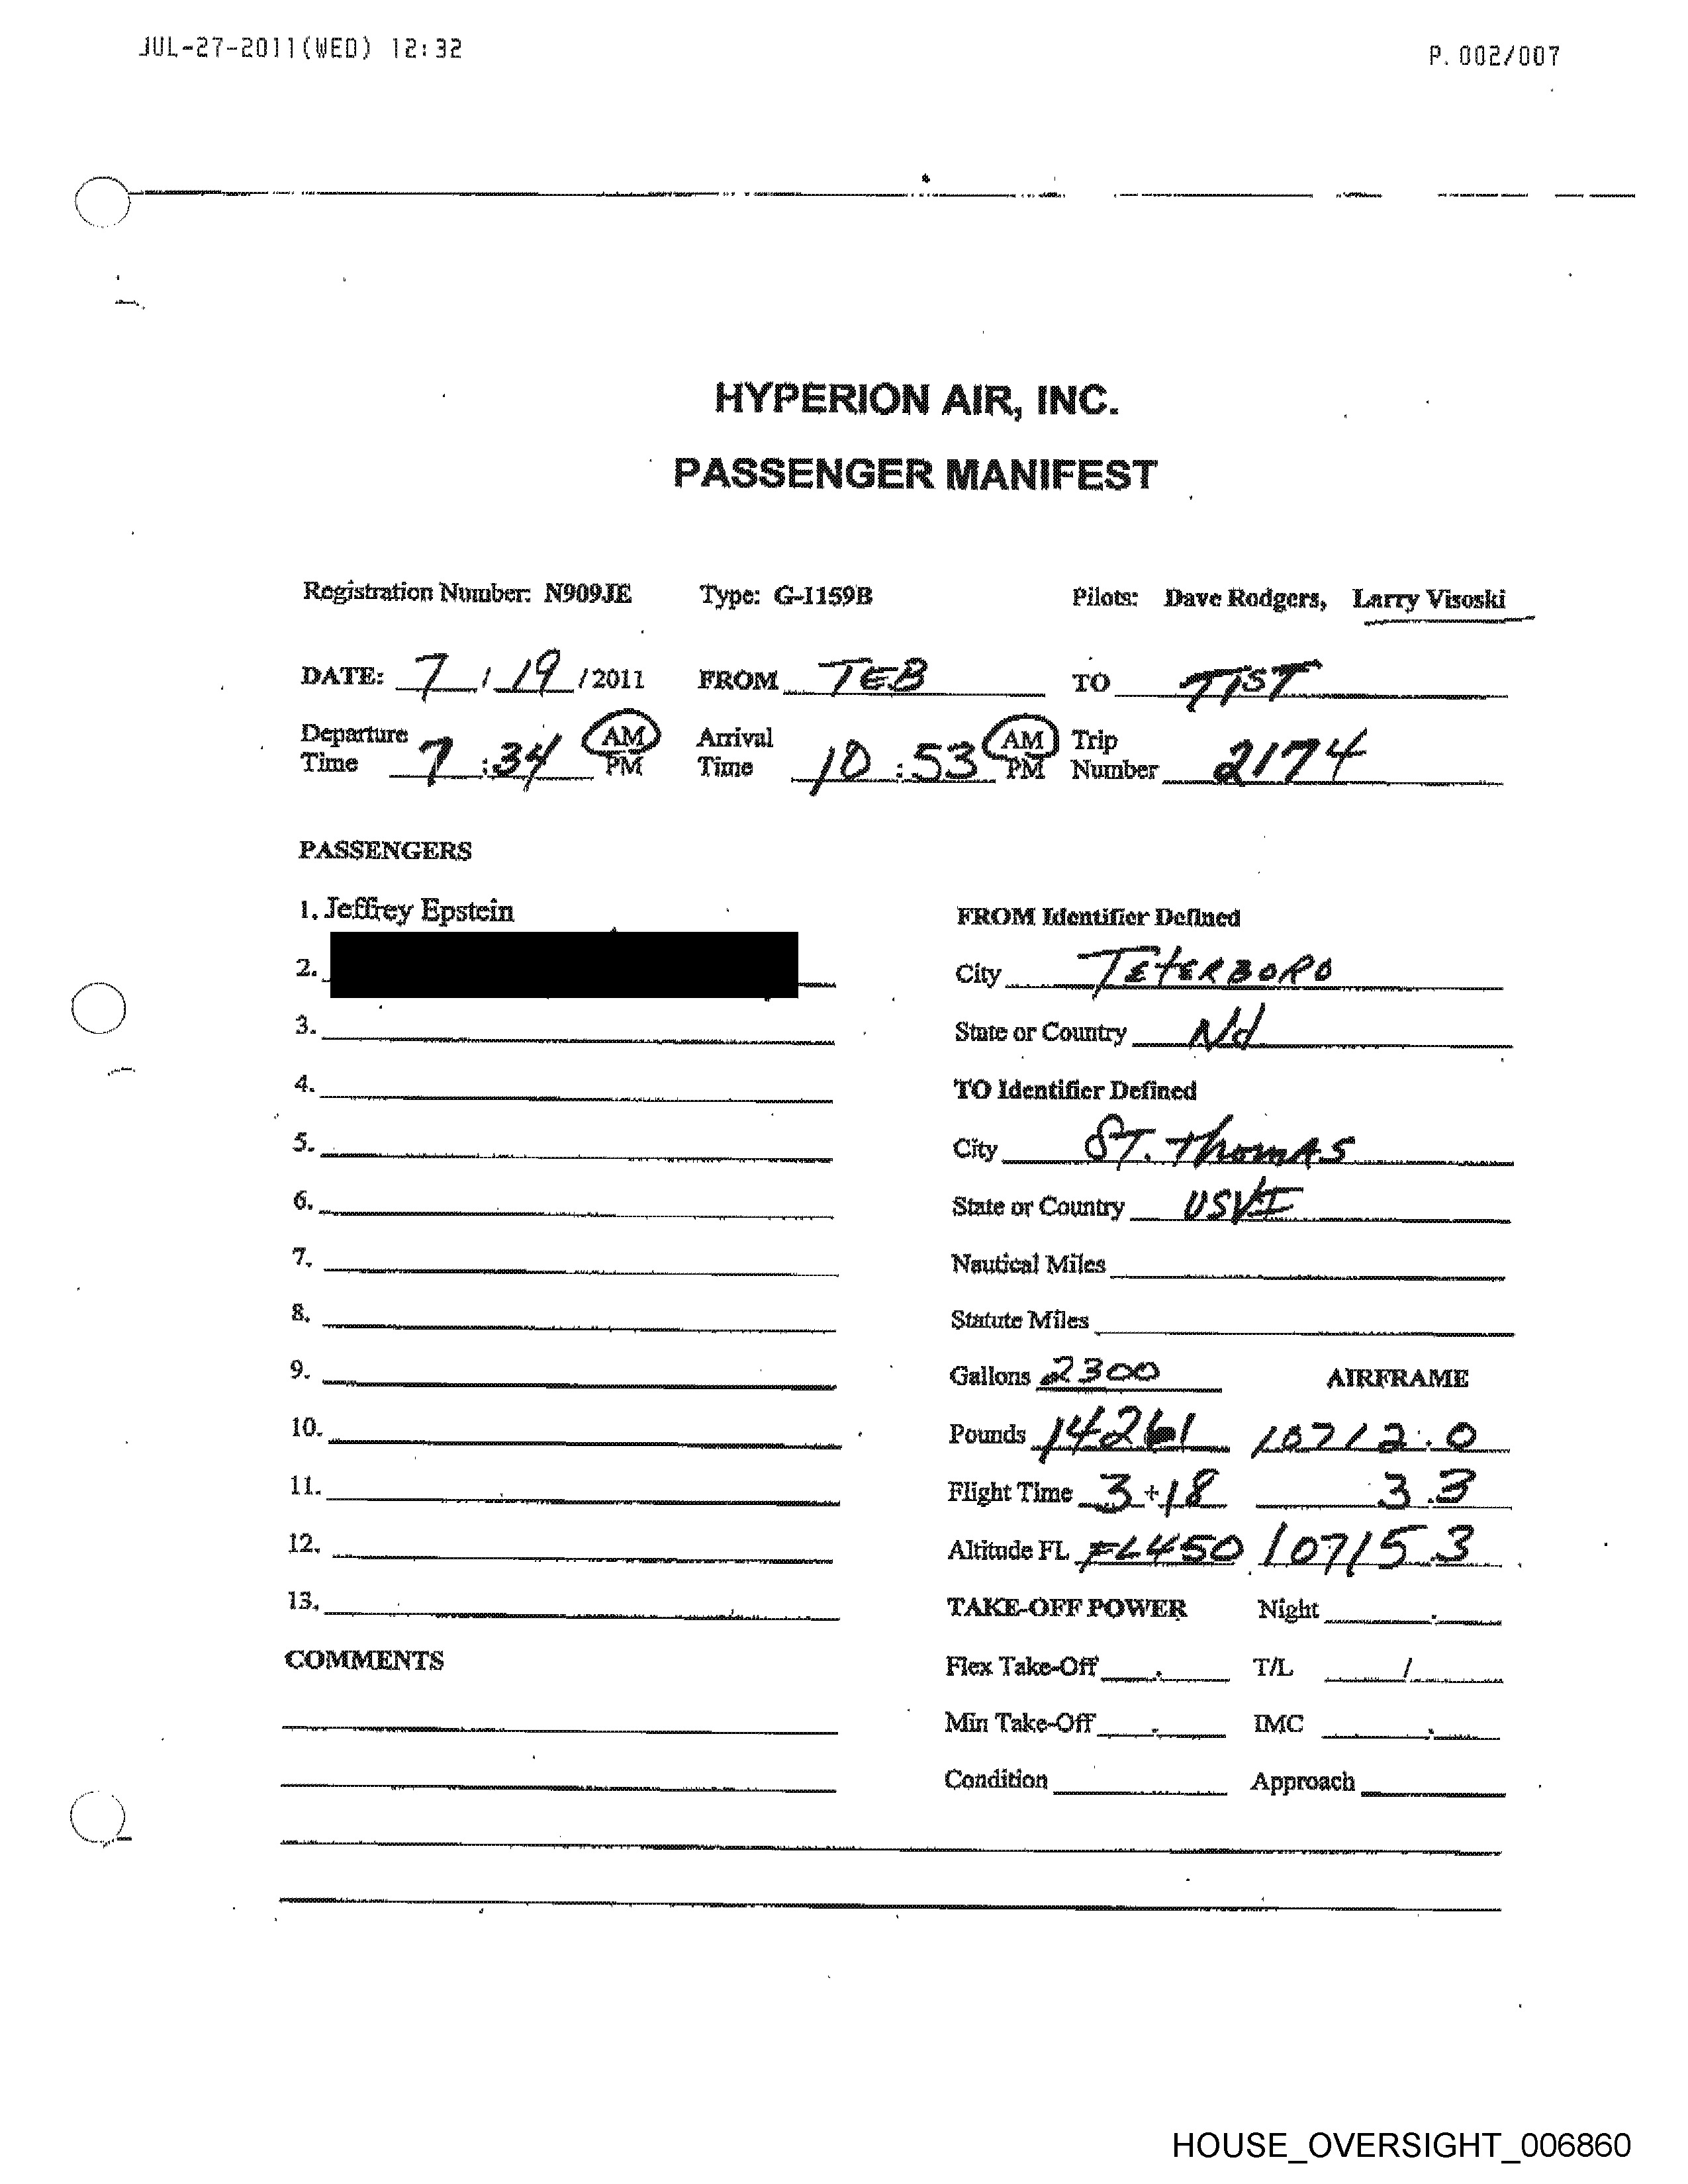 JUL-27-2011(WED) 12:32 P. 002/007
HYPERION AIR, INC.
PASSENGER MANIFEST
Registration Number: N909JE Type: G-1159B Pilots: Dave Rodgers, Larry Visoski
DATE: 7 / 19 / 2011 FROM TEB TO TIST
Departure Time 7 : 34 AM PM Arrival Time 10 : 53 AM PM Trip Number 2174
PASSENGERS
1. Jeffrey Epstein
FROM Identifier Defined
2.
City TETERBORO
3.
State or Country NJ
4.
TO Identifier Defined
5.
City ST. THOMAS
6.
State or Country USVI
7.
Nautical Miles
8.
Statute Miles
9.
Gallons 2300 AIRFRAME
10.
Pounds 14261 10712.0
11.
Flight Time 3+18 3.3
12.
Altitude FL FL450 10715.3
13.
TAKE-OFF POWER Night
COMMENTS
Flex Take-Off T/L /
Min Take-Off IMC
Condition Approach
HOUSE_OVERSIGHT_006860